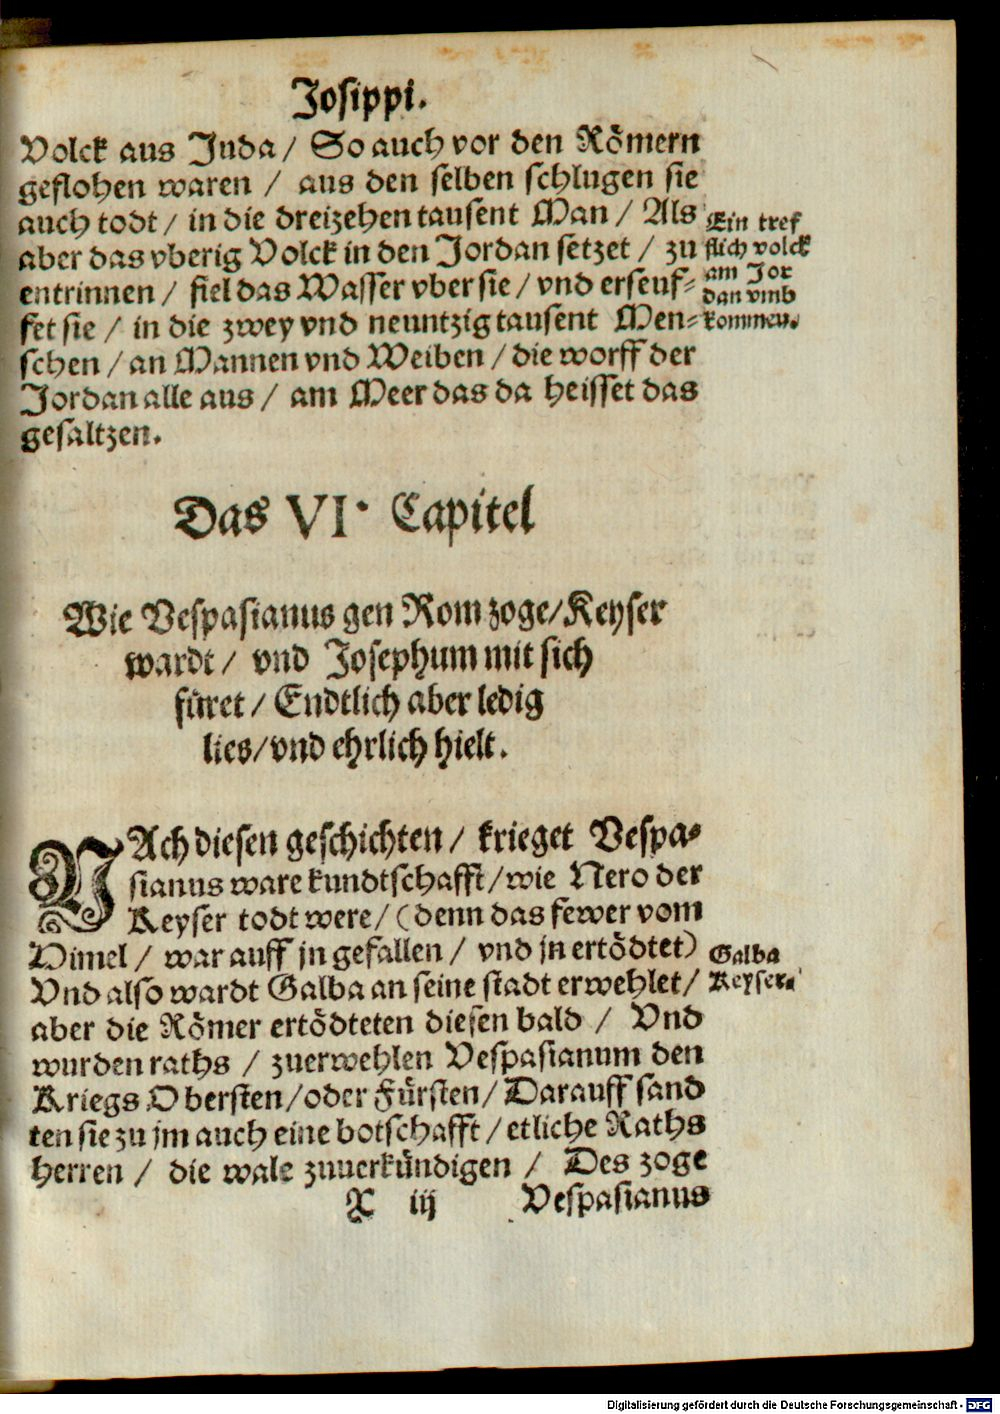 Josippi.
Volck aus Juda / So auch vor den Römern
geflohen waren / aus den selben schlugen sie
auch todt / in die dreizehen tausent Man / Als
aber das vberig Volck in den Jordan setzet / zu
entrinnen / fiel das Wasser vber sie / vnd erseuf-
fet sie / in die zwey vnd neuntzig tausent Men-
schen / an Mannen vnd Weiben / die worff der
Jordan alle aus / am Meer das da heisset das
gesaltzen.
Ein tref
flich volck
am Jor
dan vmb
kommen.
Das VI. Capitel
Wie Vespasianus gen Rom zoge/Keyser
wardt / vnd Josephum mit sich
füret / Endtlich aber ledig
lies/vnd ehrlich hielt.
NAch diesen geschichten / krieget Vespa-
sianus ware kundtschafft/wie Nero der
Keyser todt were/(denn das fewer vom
Himel / war auff jn gefallen / vnd jn ertödtet)
Vnd also wardt Galba an seine stadt erwehlet/
aber die Römer ertödteten diesen bald / Vnd
wurden raths / zuerwehlen Vespasianum den
Kriegs Obersten/oder Fürsten/Darauff sand
ten sie zu jm auch eine botschafft/etliche Raths
herren / die wale zuuerkündigen / Des zoge
Galba
Keyser.
X iij Vespasianus
Digitalisierung gefördert durch die Deutsche Forschungsgemeinschaft - DFG